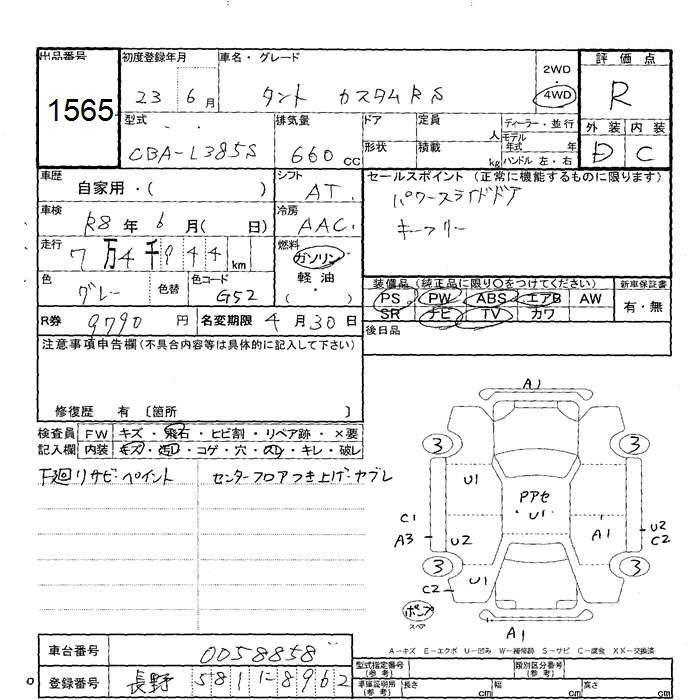 出品番号
1565
初度登録年月
23年 6月
車名・グレード
タント カスタムRS
2WD
4WD
評価点
R
型式
CBA-L385S
排気量
660 cc
ドア
形状
定員 人
積載 kg
ディーラー・並行
モデル年式 年
ハンドル 左・右
外装 内装
D C
車歴
自家用・( )
シフト
AT
車検
R8年 6月( 日)
冷房
AAC
走行
7万4千944 km
燃料
ガソリン
軽油
( )
色
グレー
色替
色コード
G52
セールスポイント (正常に機能するものに限ります)
パワースライドドア
キーフリー
装備品 (純正品に限り○をつけてください)
PS PW ABS エアB AW
SR ナビ TV カワ
新車保証書
有・無
R券
9790円
名変期限 4月30日
後日品
注意事項申告欄(不具合内容等は具体的に記入して下さい)
修復歴 有 〔箇所 〕
検査員 FW キズ・飛石・ヒビ割・リペア跡・×要
記入欄 内装 キズ・汚れ・コゲ・穴・スレ・キレ・破レ
下廻リサビ・ペイント
センターフロアつき上げ・ヤブレ
A1
3 3
U1
Pアセ
U1
C1
A3
U2
A1
U2
C2
3 3
U1
C2
ポンプ
スペア
A1
A-キズ E-エクボ U-凹み W-補修跡 S-サビ C-腐食 XX-交換済
車台番号
0058858
登録番号
長野 581 に 8962
型式指定番号
(参考)
類別区分番号
(参考)
車庫証明用
(参考)
長さ cm
幅 cm
高さ cm